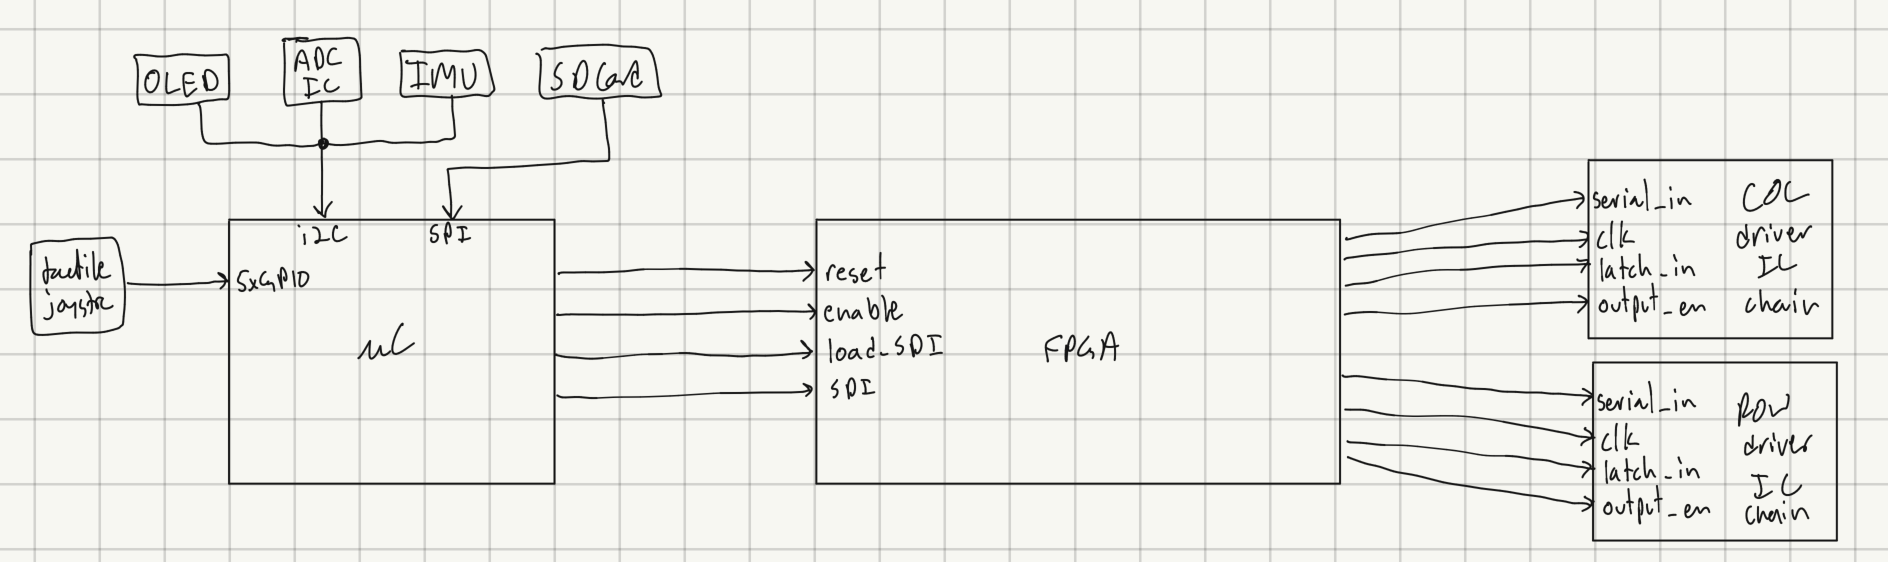 OLED
ADC
IC
IMU
SD Card
i2C
SPI
tactile
5xGPIO
µC
reset
enable
load_SDI
SDI
FPGA
serial_in
clk
latch_in
output_en
COL
driver
IC
chain
serial_in
clk
latch_in
output_en
ROW
driver
IC
chain